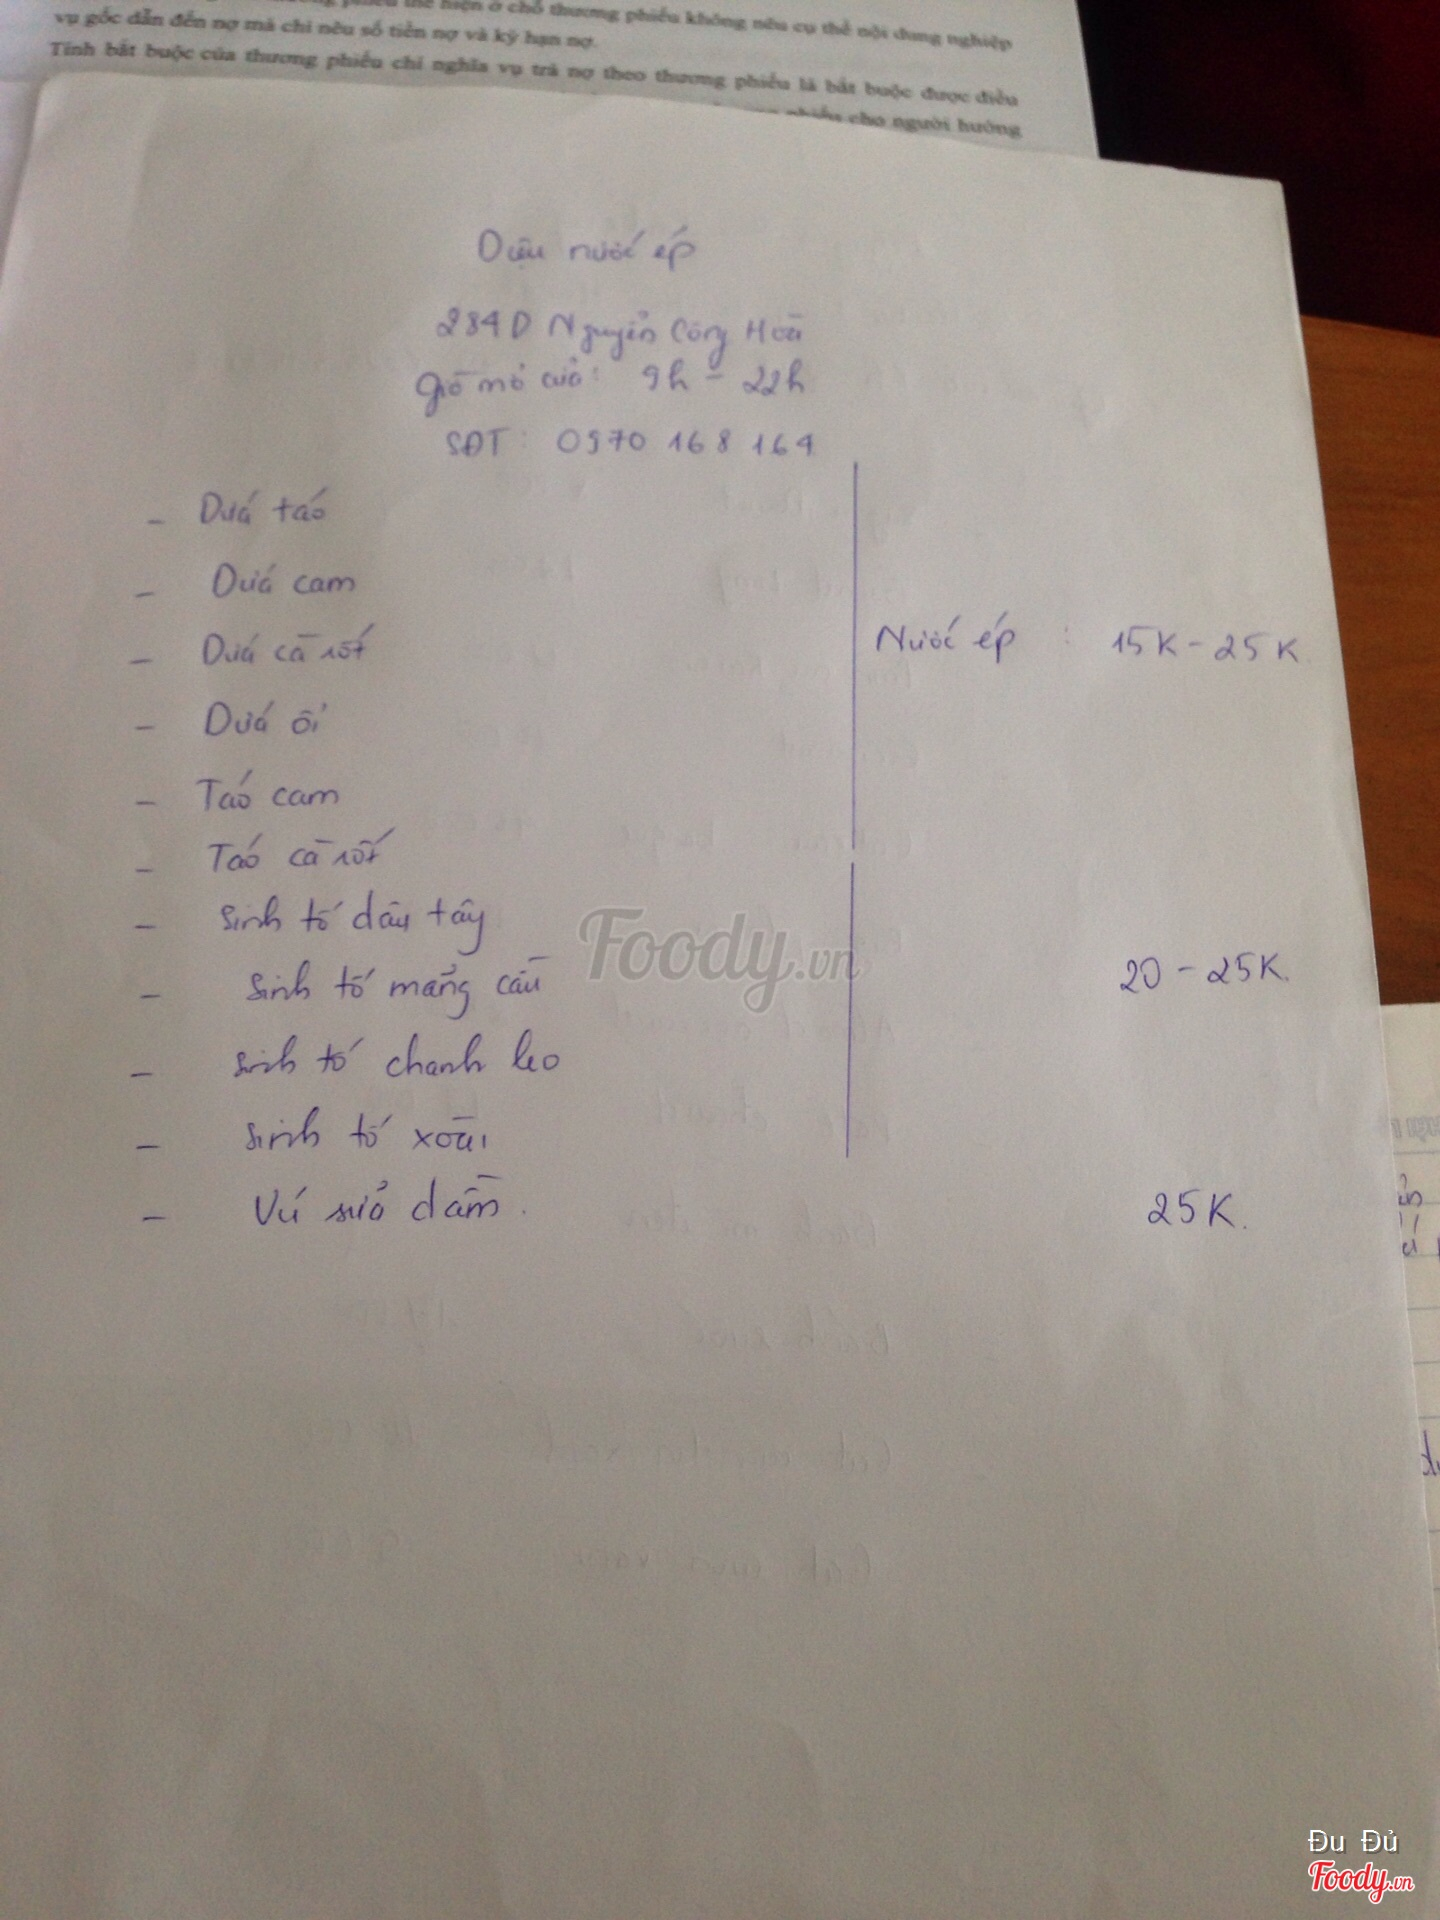 thể hiện ở chỗ thương phiếu không nêu cụ thể nội dung nghiệp
vụ gốc dẫn đến nợ mà chỉ nêu số tiền nợ và kỳ hạn nợ.
Tính bắt buộc của thương phiếu chỉ nghĩa vụ trả nợ theo thương phiếu là bắt buộc được điều
phiếu cho người hưởng
Diệu nước ép
284D Nguyễn Công Hoà
Giờ mở cửa: 9h - 22h
SĐT: 0970 168 164
- Dứa táo
- Dứa cam
- Dứa cà rốt
Nước ép : 15K - 25K
- Dứa ổi
- Táo cam
- Táo cà rốt
- Sinh tố dâu tây
- Sinh tố mãng cầu
20 - 25K.
- Sinh tố chanh leo
- Sinh tố xoài
- Vú sữa dầm.
25K.
Foody.vn
Đu Đủ
Foody.vn